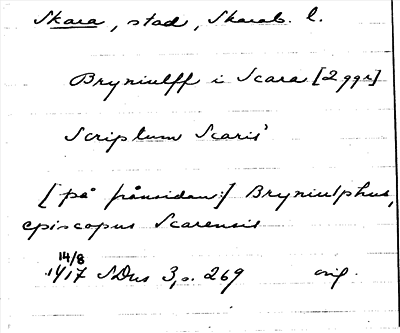 Skara, stad, Skarab. l.
Bryniulff i Scara [2 ggr]
Scriptum Scaris
[på frånsidan:] Bryniulphus,
episcopus Scarensis
14/8
1417 SDns 3, s. 269 orig.